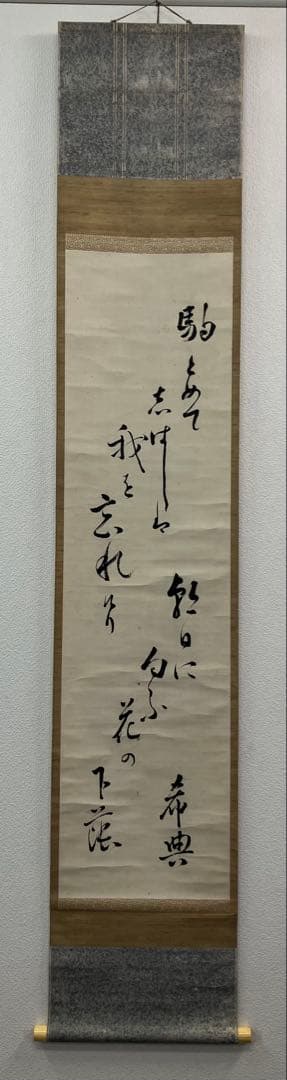 駒とめて
志はし
我を
忘れけり
朝日に
匂ふ
花の
下蔭
希典